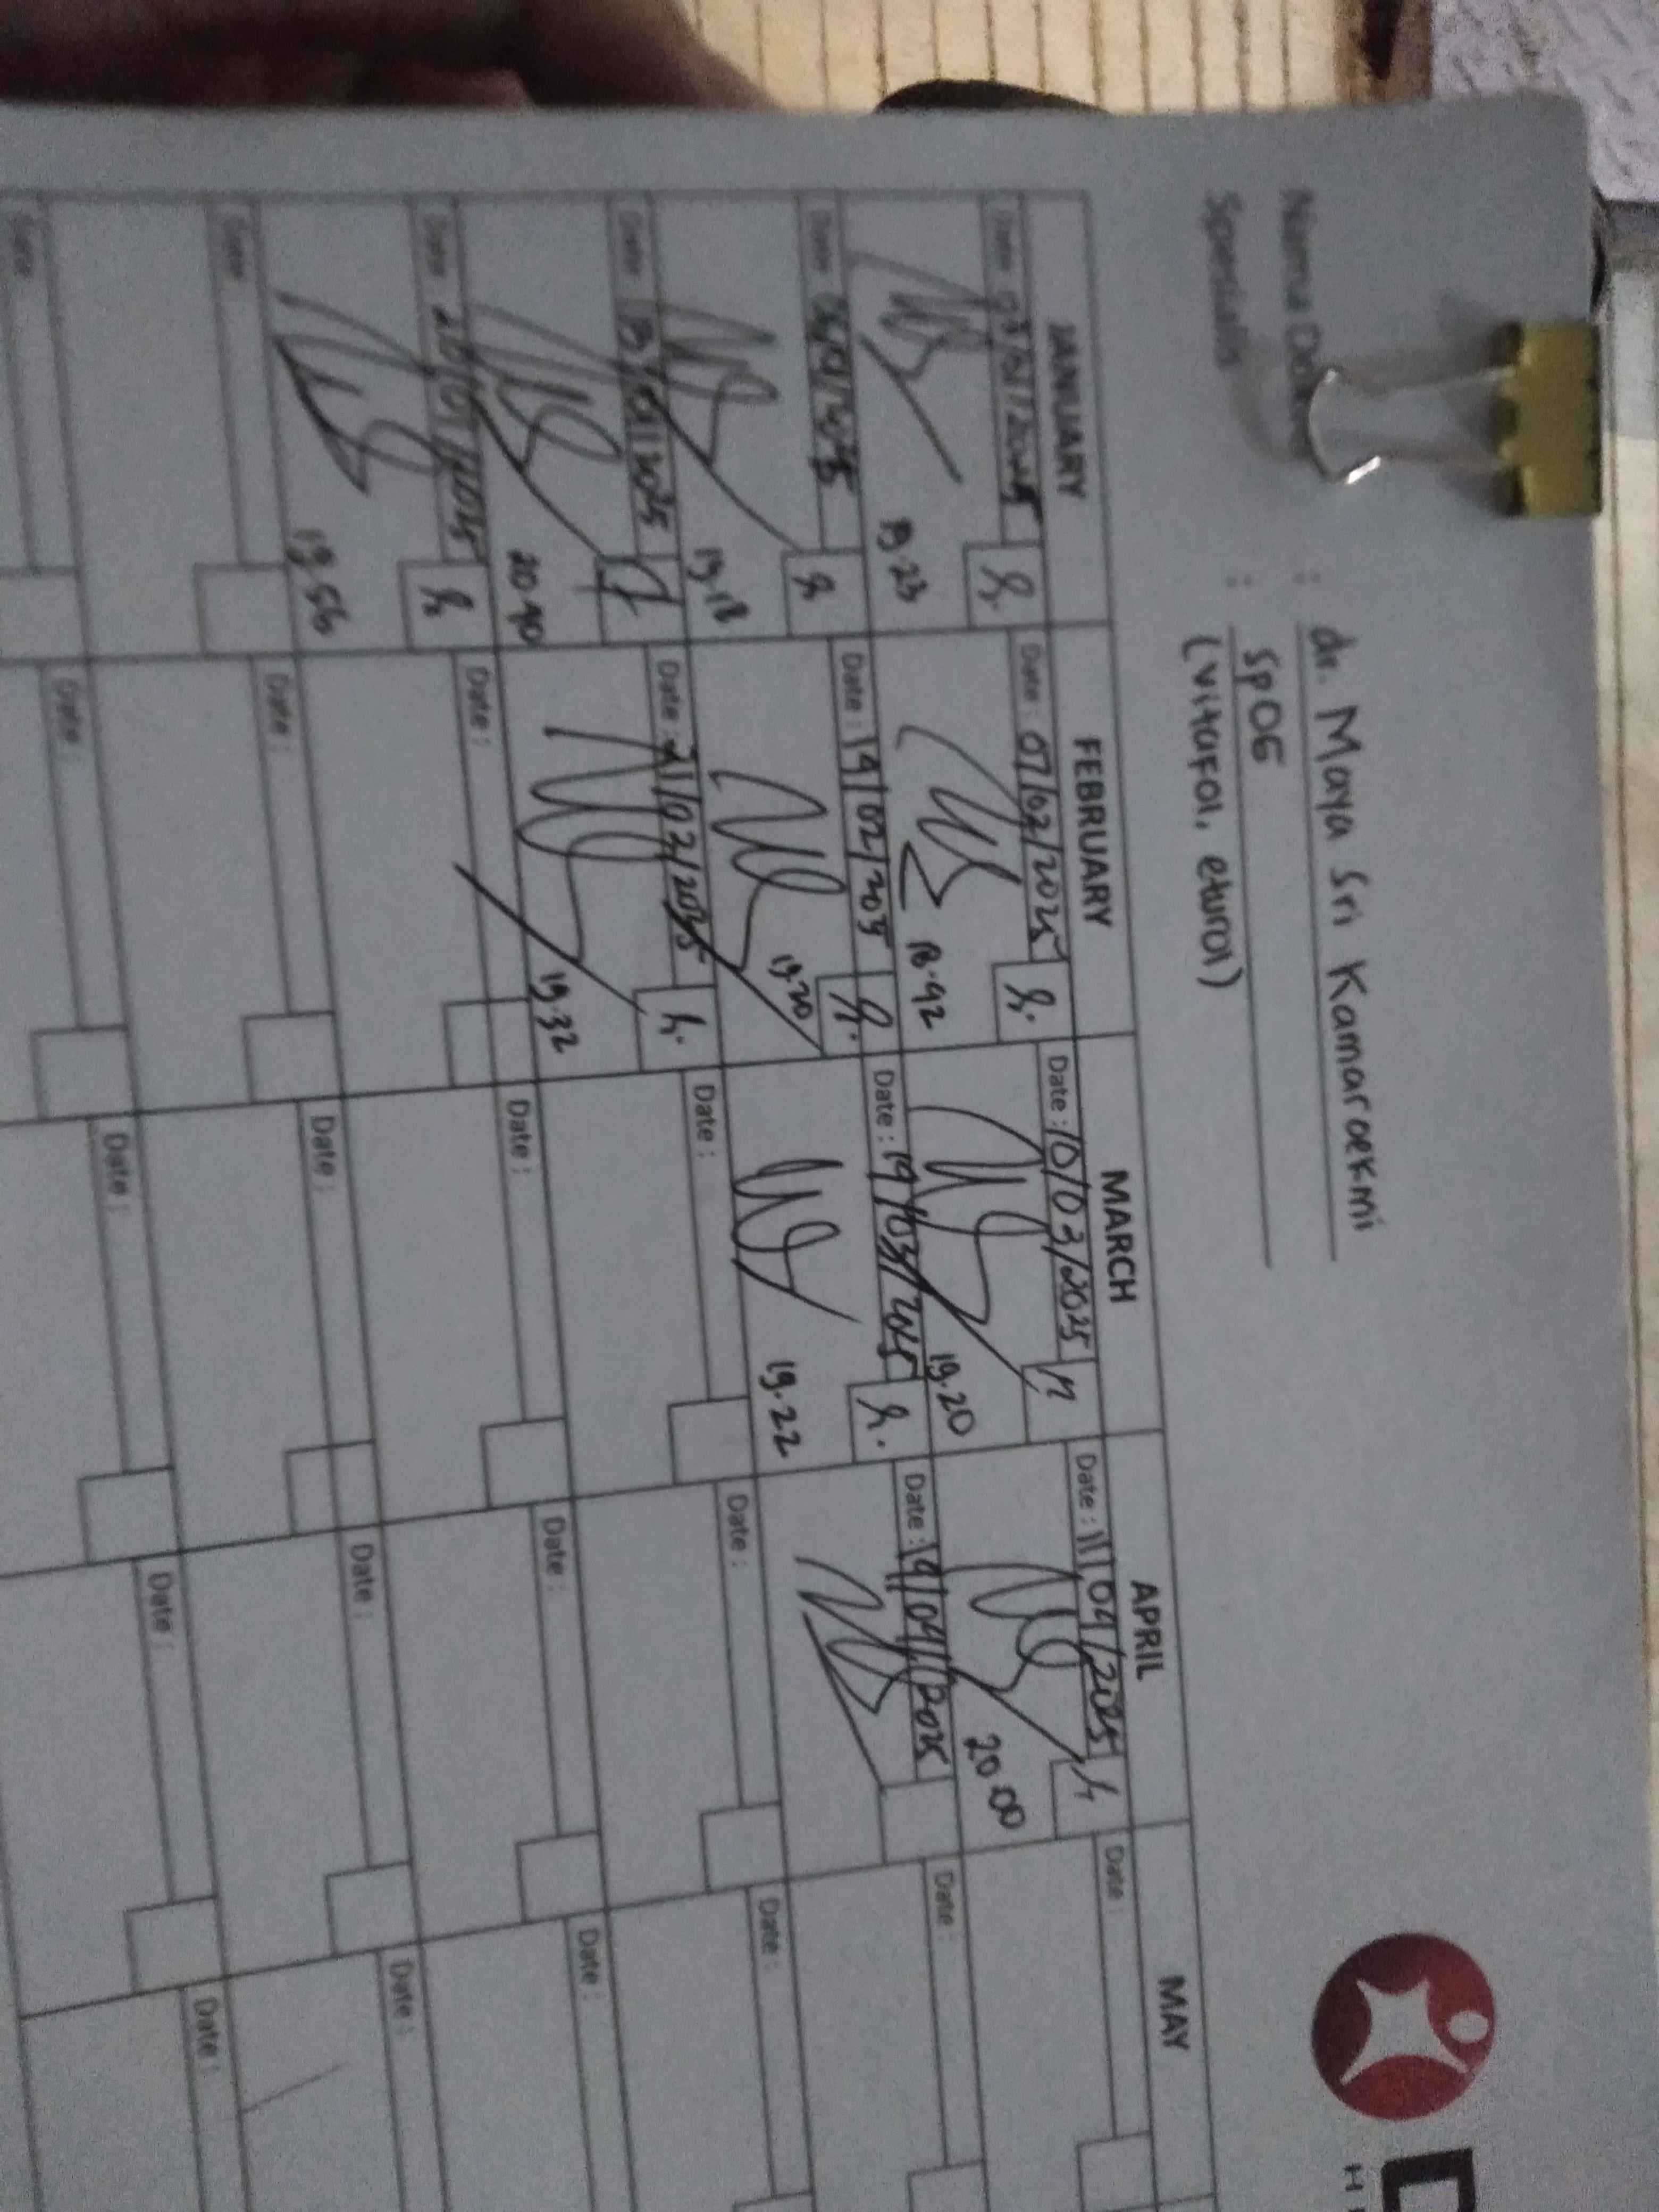 Nama
: dr. Maya Sri Kamaroekmi
Spesialis
: SpOG
(Vitafol, eturol)
JANUARY FEBRUARY MARCH APRIL MAY
Date : 07/02/2025
Date : 10/03/2025
Date : 11/04/2025
Date :
19.23
18.42
19.20
20.00
Date :
Date : 19/02/2025
Date : 19/03/2025
Date : 19/04/2025
Date :
19.18
19.20
19.22
Date : 13/01/2025
Date : 21/02/2025
Date :
Date :
Date :
20.40
19.32
Date : 20/01/2025
Date :
Date :
Date :
Date :
19.56
Date :
Date :
Date :
Date :
Date :
Date
Date :
Date :
Date :
Date :